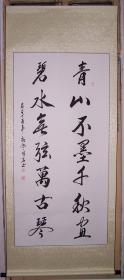 青山不墨千秋画
碧水無弦萬古琴